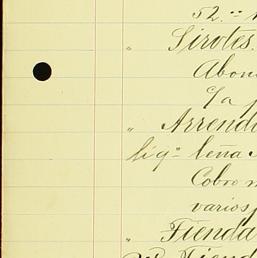 52.
" Sirotes.
Abon
" Arrenda
liqn leña
Cobro
varios
" Tienda
Tienda